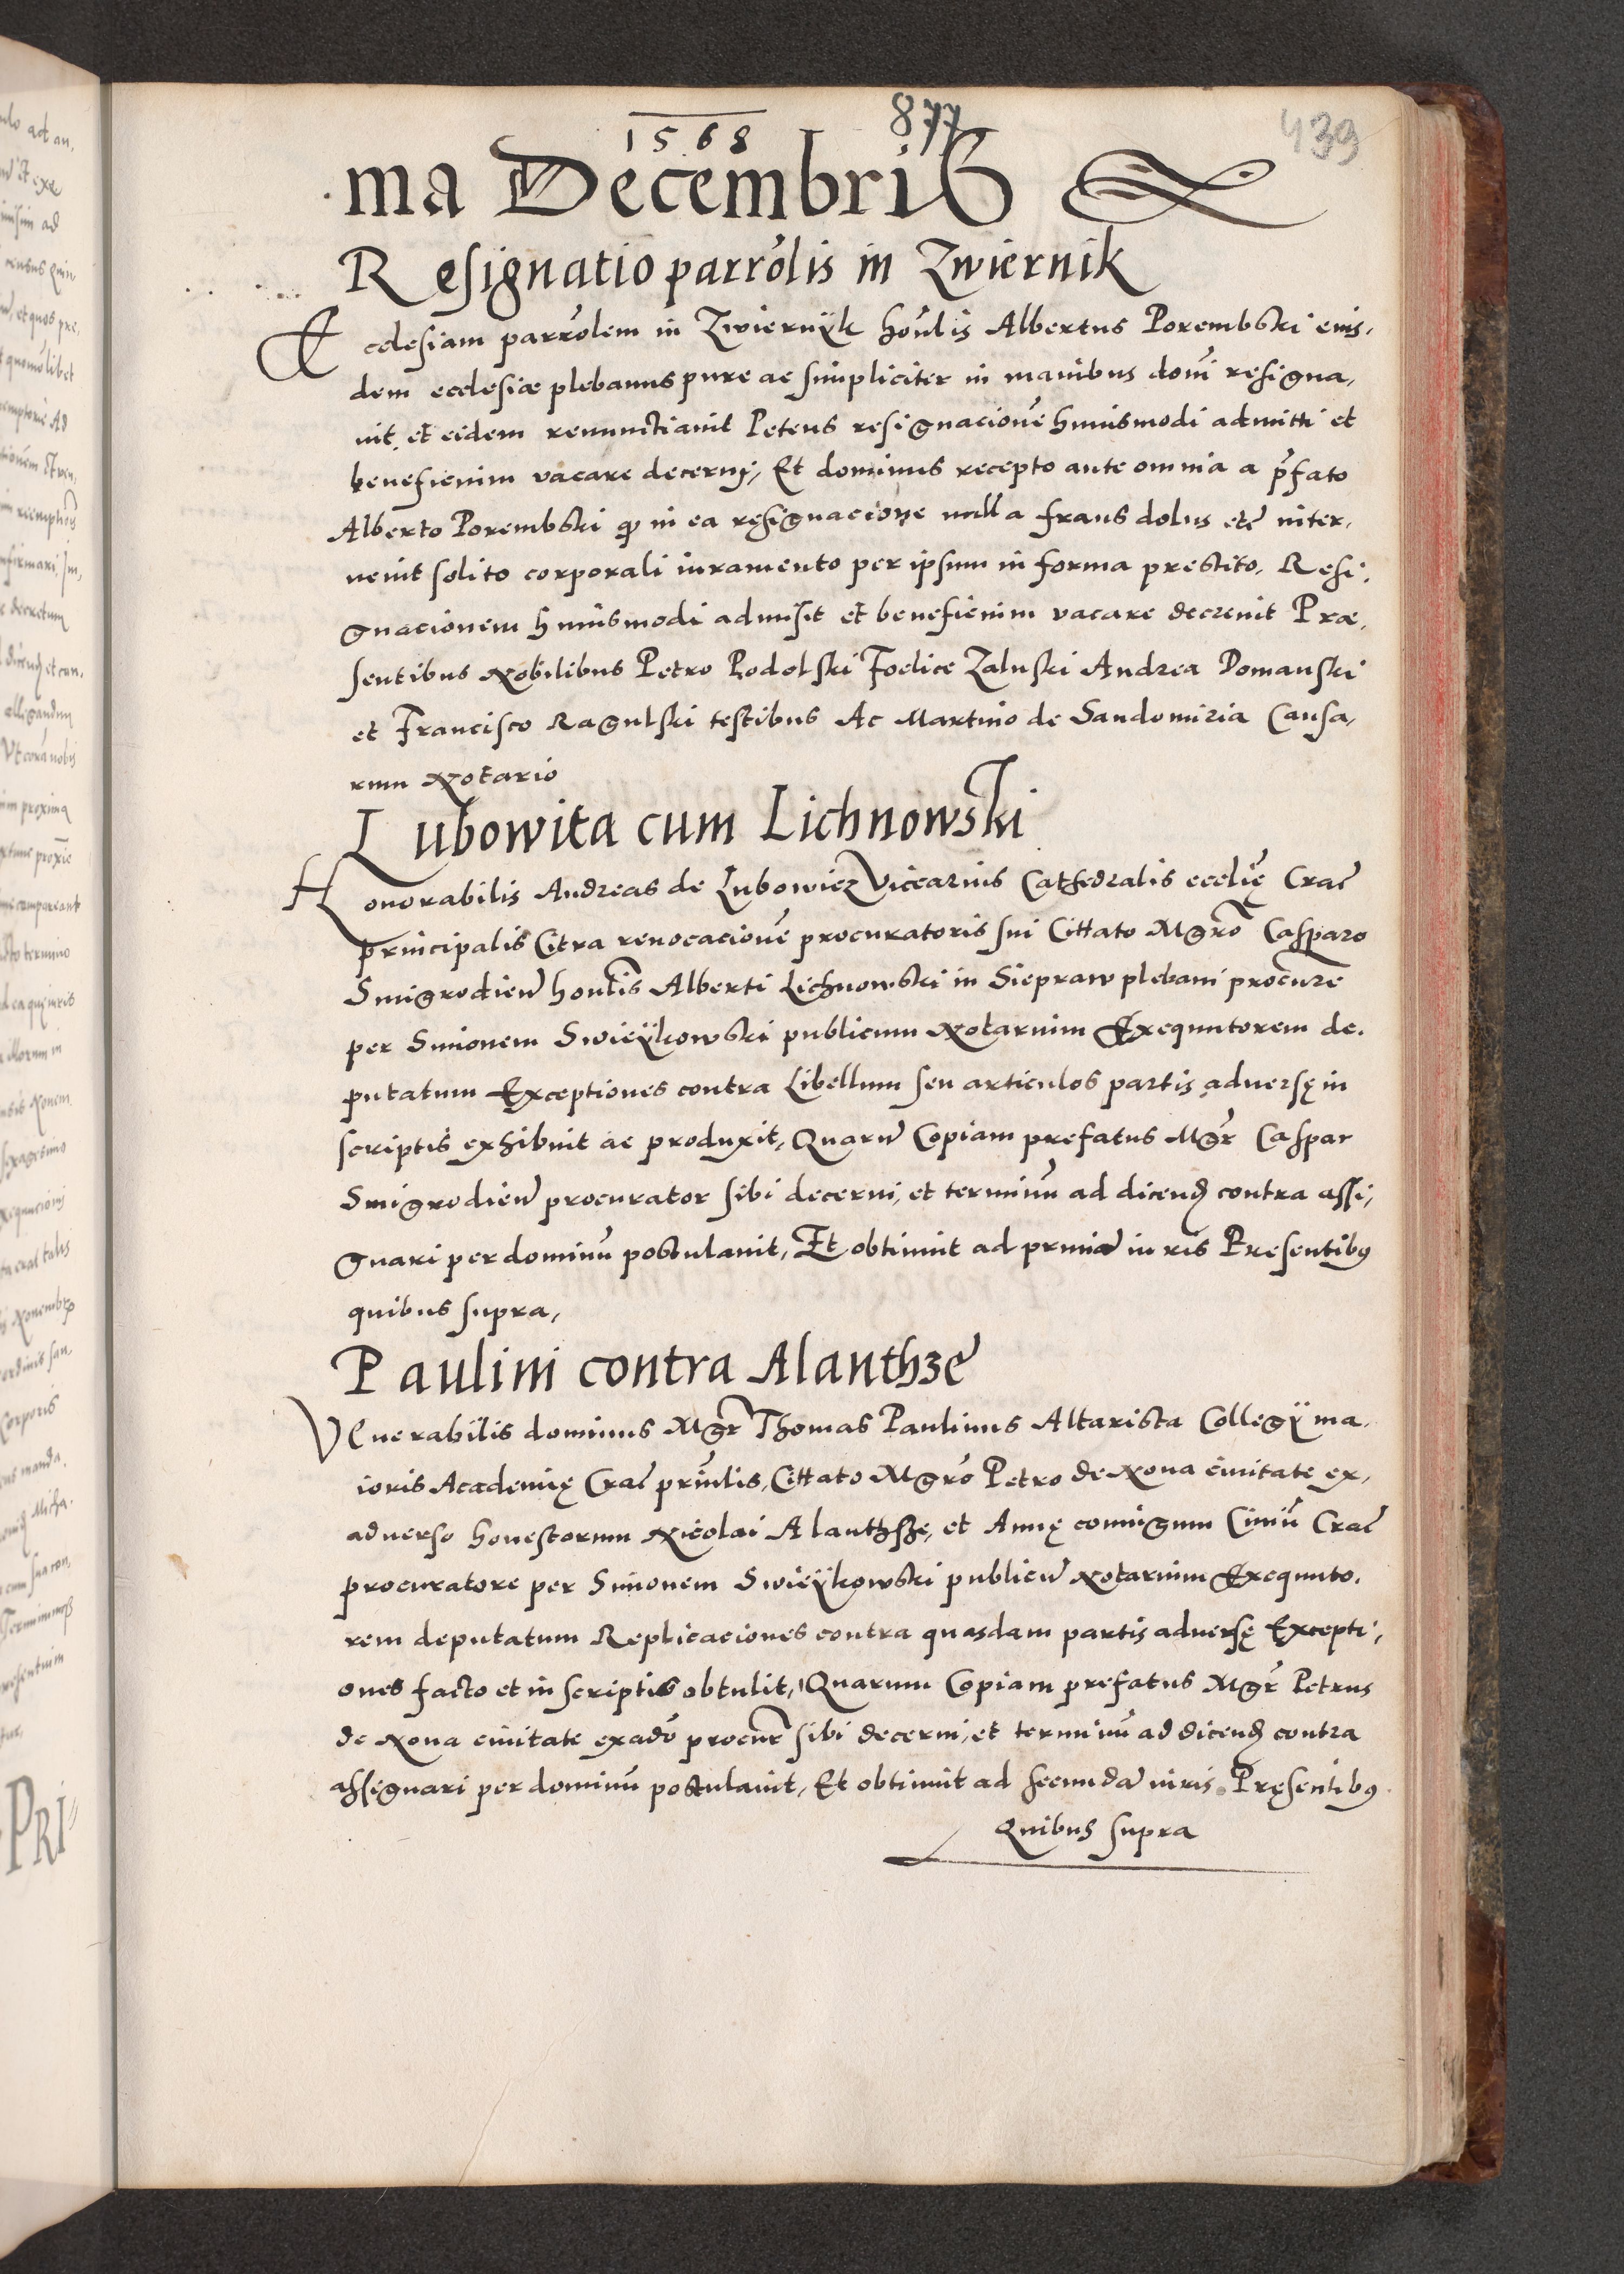 1568
877
439
ma Decembris
Resignatio parrolis in Zwiernik
Ecclesiam parrolem in Zwiernÿk honlis Albertus Porembski eius,
dem ecclesiæ plebanus pure ac simpliciter in manibus domi resigna,
uit, et eidem renunctiauit Petens resignacione huiusmodi admitti et
beneficium vacare decerni, Et dominus recepto ante omnia a prefato
Alberto Porembski qꝫ in ea resignacione nulla fraus dolus etc inter,
uenit solito corporali iuramento per ipsum in forma prestito, Resi,
gnacionem huiusmodi admisit et beneficium vacare decreuit Præ,
sentibus Nobilibus Petro Podolski Foelice Zaluski Andrea Domanski
et Francisco Ragulski testibus Ac Martino de Sandomiria Causa,
rum Notario
Lubowita cum Lichnowski
Honorabilis Andreas de Lubowicz Vicarius Cathedralis ecclię Crac
principalis Citra reuocacione procuratoris sui Cittato Mgro Casparo
Smigrodien honlis Alberti Lichnowski in Siepraw plebani procure
per Simonem Swieÿkowski publicum Notarium Exequutorem de,
putatum Exceptiones contra Libellum seu articulos partis aduersę in
scriptis exhibuit ac produxit, Quarum Copiam prefatus Mgr Caspar
Smigrodien procurator sibi decerni, et terminu ad dicend contra assi,
gnari per dominu postulauit, Et obtinuit ad prima iuris Presentibꝰ
quibus supra,
Paulini contra Alanthze
VEnerabilis dominus Mgr Thomas Paulinus Altarista Collegÿ ma,
ioris Academię Crac prinlis, Cittato Mgro Petro de Noua ciuitate ex,
aduerso honestorum Nicolai Alanthsze, et Annę coniugum Ciuiu Crac
procuratore per Simonem Swieÿkowski publicu Notarium Exequuto,
rem deputatum Replicaciones contra quasdam partis aduersę Excepti,
ones facto et in scriptis obtulit, Quarum Copiam prefatus Mgr Petrus
de Noua ciuitate exado procur sibi decerni, et terminu ad dicend contra
assignari per dominu postulauit, Et obtinuit ad secunda iuris. Pręsentibꝰ
Quibus supra